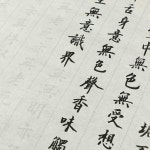 中無色無受想
舌身意無色聲香味觸
無意識界